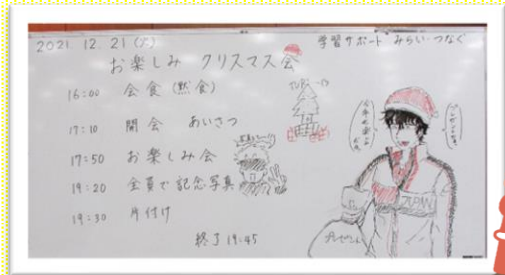 2021. 12. 21 (火)
学習サポート みらい・つなぐ
お楽しみ クリスマス会
16:00 会食 (黙食)
17:10 開会 あいさつ
17:50 お楽しみ会
19:20 全員で記念写真
19:30 片付け
終了 19:45
JAPAN